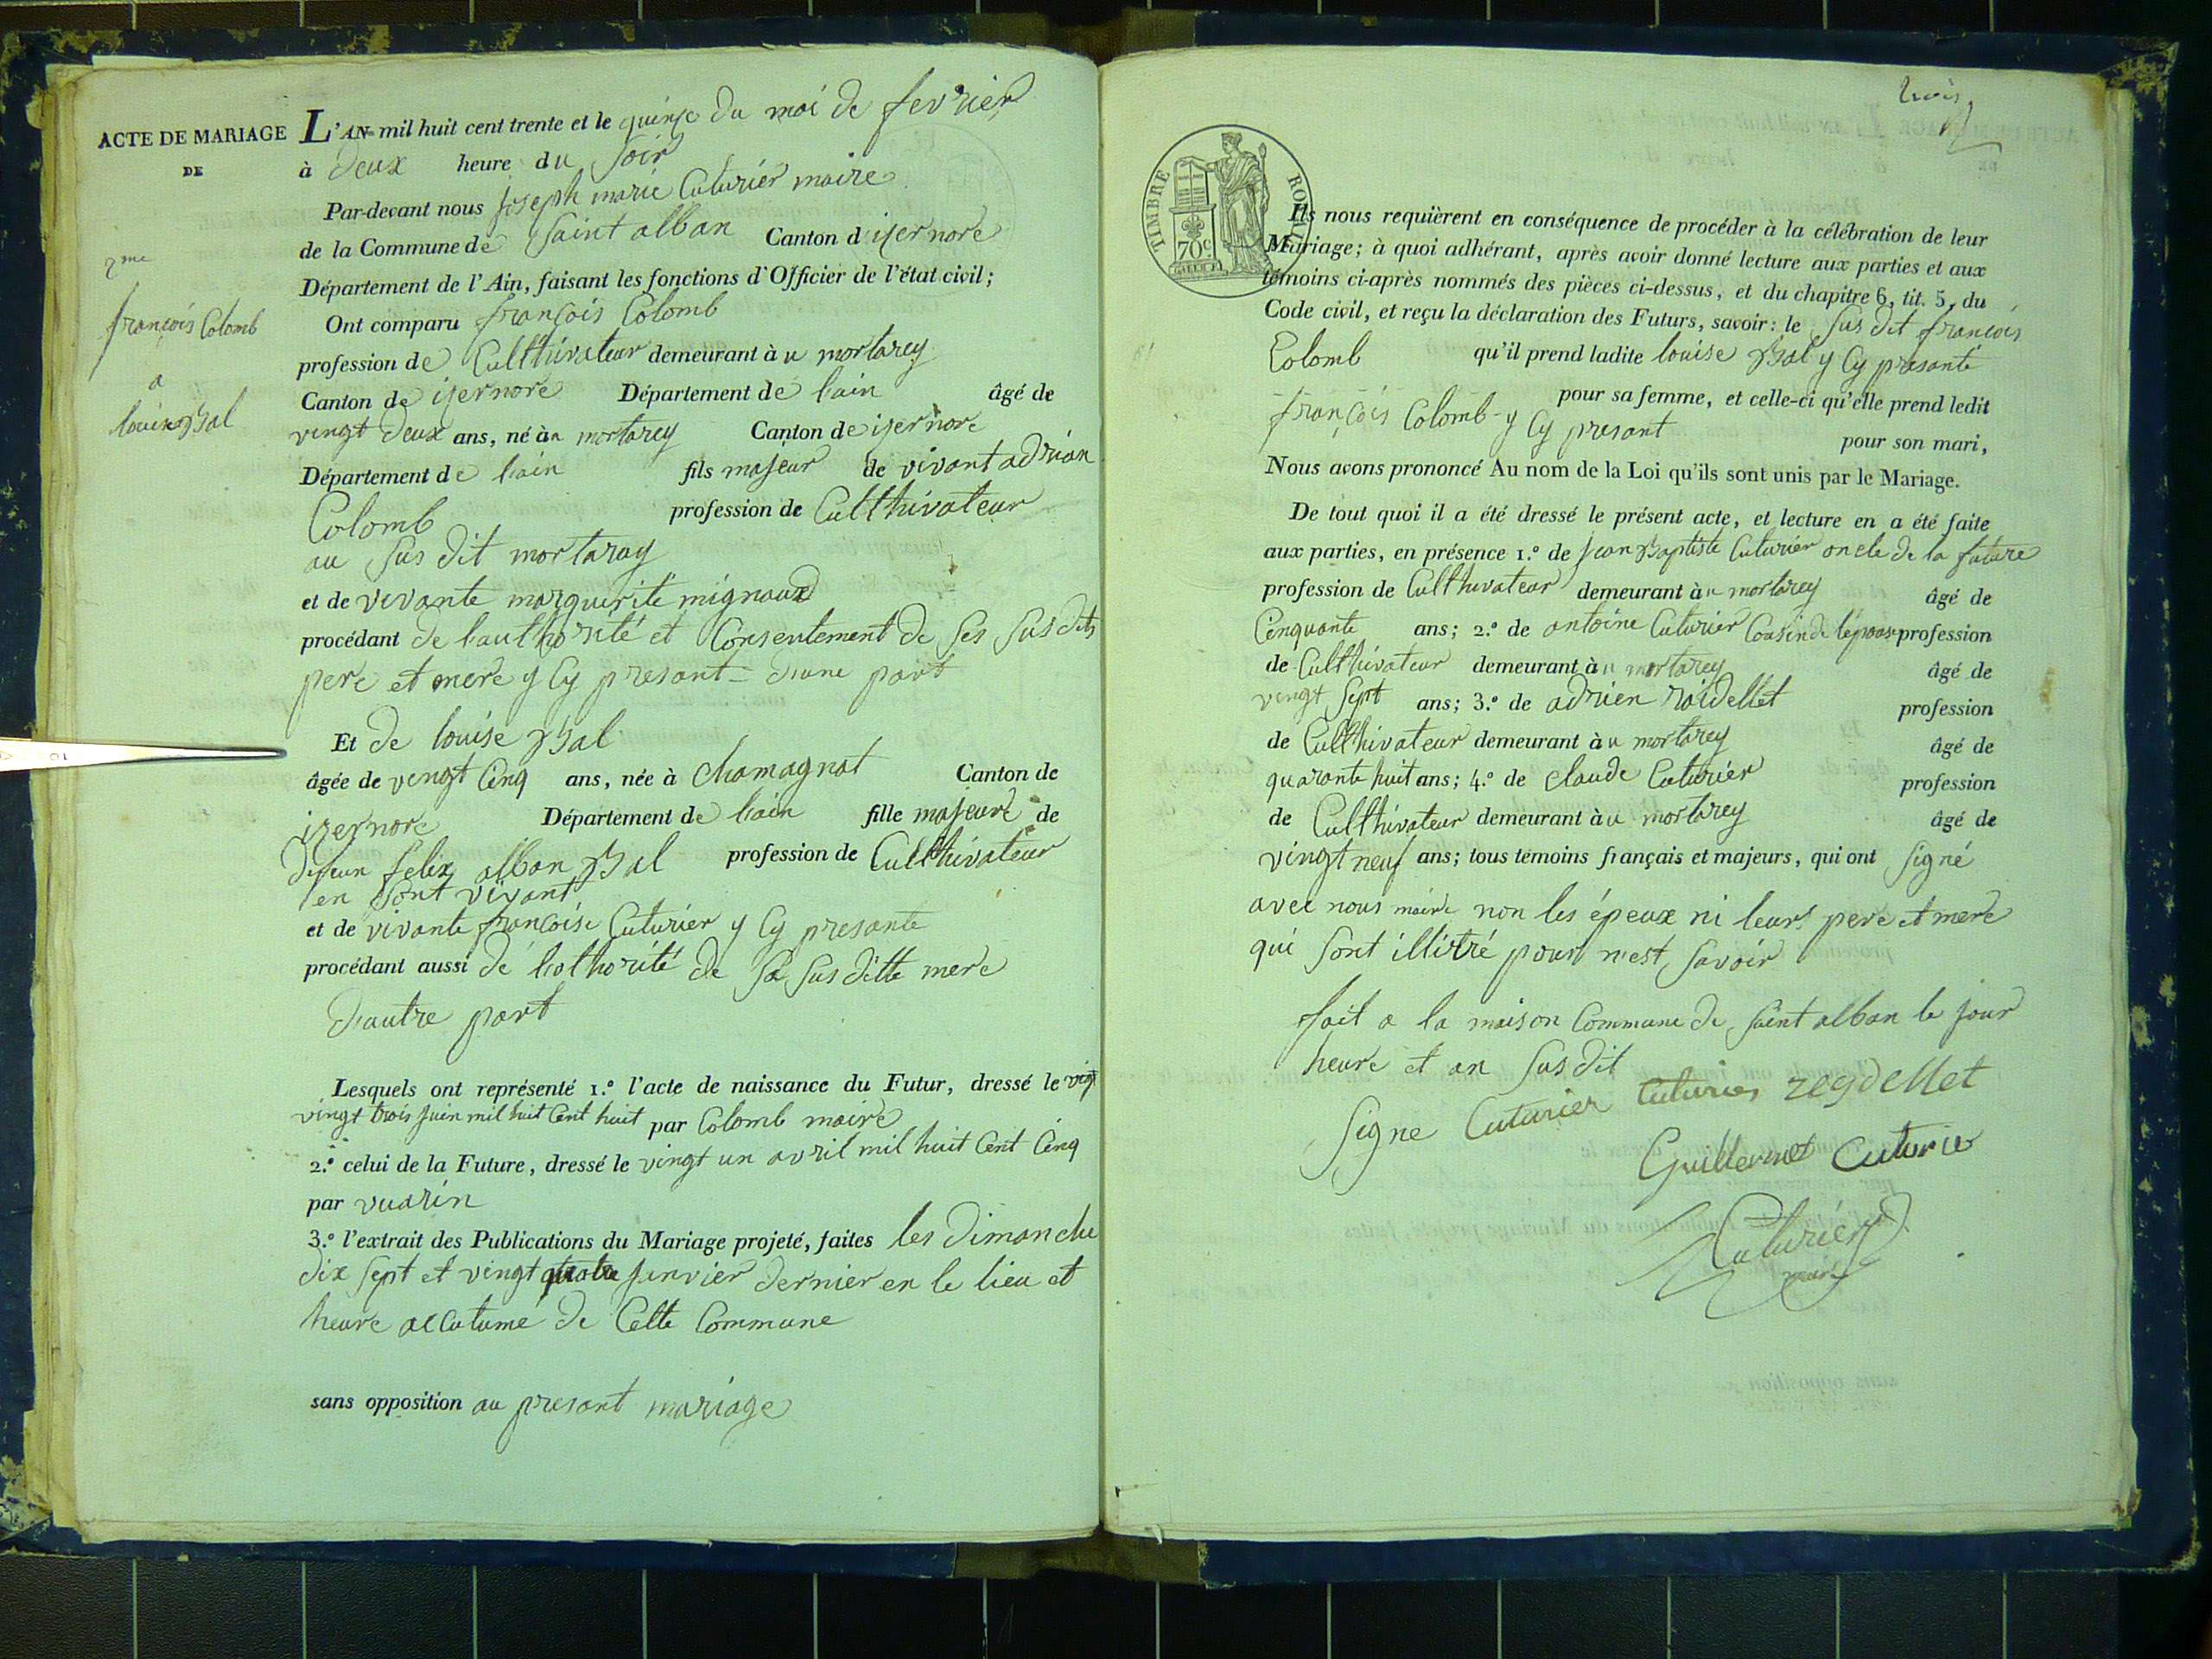 ACTE DE MARIAGE
DE
2me
françois Colomb
a
louise Bal
L'AN mil huit cent trente et le quinze du moi de fevrier
à deux heure du soir
Par-devant nous joseph marie Cuturier maire
de la Commune de Saint alban Canton d izernore
Département de l'Ain, faisant les fonctions d'Officier de l'état civil;
Ont comparu françois Colomb
profession de Culthivateur demeurant à u mortarey
Canton de izernore Département de lain âgé de
vingt deux ans, né à u mortarey Canton de izernore
Département de lain fils majeur de vivant adrian
Colomb profession de Culthivateur
au sus dit mortaray
et de vivante marguerite mignaud
procédant de lauthorité et Consentement de ses sus dits
pere et mere y Cy presant = dune part
Et de louise Bal
âgée de vingt Cinq ans, née à Chamagnat Canton de
izernore Département de lain fille majeure de
defeun felix alban Bal profession de Culthivateur
en sont vivant
et de vivante françoise Cuturier y Cy presante
procédant aussi de lothorité de sa sus ditte mere
d'autre part
Lesquels ont représenté 1.º l'acte de naissance du Futur, dressé le vingt
vingt trois juin mil huit Cent huit par Colomb maire
2.º celui de la Future, dressé le vingt un avril mil huit Cent Cinq
par vuarin
3.º l'extrait des Publications du Mariage projeté, faites les dimanche
dix sept et vingt quatre janvier dernier en le lieu et
heure accutumé de Cette Commune
sans opposition au presant mariage
trois
TIMBRE ROYAL
70c
Ils nous requièrent en conséquence de procéder à la célébration de leur
Mariage; à quoi adhérant, après avoir donné lecture aux parties et aux
témoins ci-après nommés des pièces ci-dessus, et du chapitre 6, tit. 5, du
Code civil, et reçu la déclaration des Futurs, savoir: le sus dit françois
Colomb qu'il prend ladite louise Bal y Cy presante
pour sa femme, et celle-ci qu'elle prend ledit
françois Colomb y Cy presant pour son mari,
Nous avons prononcé Au nom de la Loi qu'ils sont unis par le Mariage.
De tout quoi il a été dressé le présent acte, et lecture en a été faite
aux parties, en présence 1.º de jean Baptiste Cuturier oncle de la future
profession de Culthivateur demeurant à u mortarey âgé de
Cinquante ans; 2.º de antoine Cuturier Cousin de lépouse profession
de Culthivateur demeurant à u mortarey âgé de
vingt sept ans; 3.º de adrien roidellet profession
de Culthivateur demeurant à u mortarey âgé de
quarante huit ans; 4.º de claude Cuturier profession
de Culthivateur demeurant à u mortarey âgé de
vingt neuf ans; tous témoins français et majeurs, qui ont signé
avec nous maire non les épeux ni leurs pere et mere
qui sont illitré pour n'est savoir
fait a la maison Commune de saint alban le jour
heure et an sus dit
Signe Cuturier Cuturier regdellet
Guillermet Cuturier
Cuturier
maire